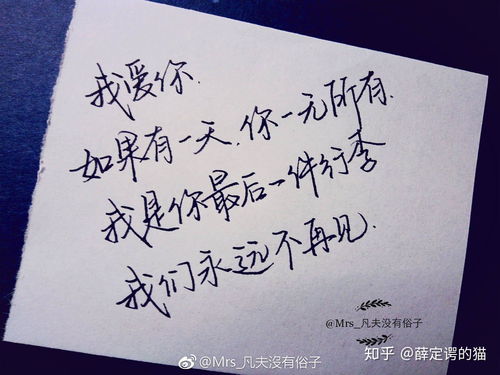 我爱你.
如果有一天,你一无所有.
我是你最后一件行李
我们永远不再见.
@Mrs_凡夫没有俗子
@Mrs_凡夫没有俗子
知乎 @薛定谔的猫